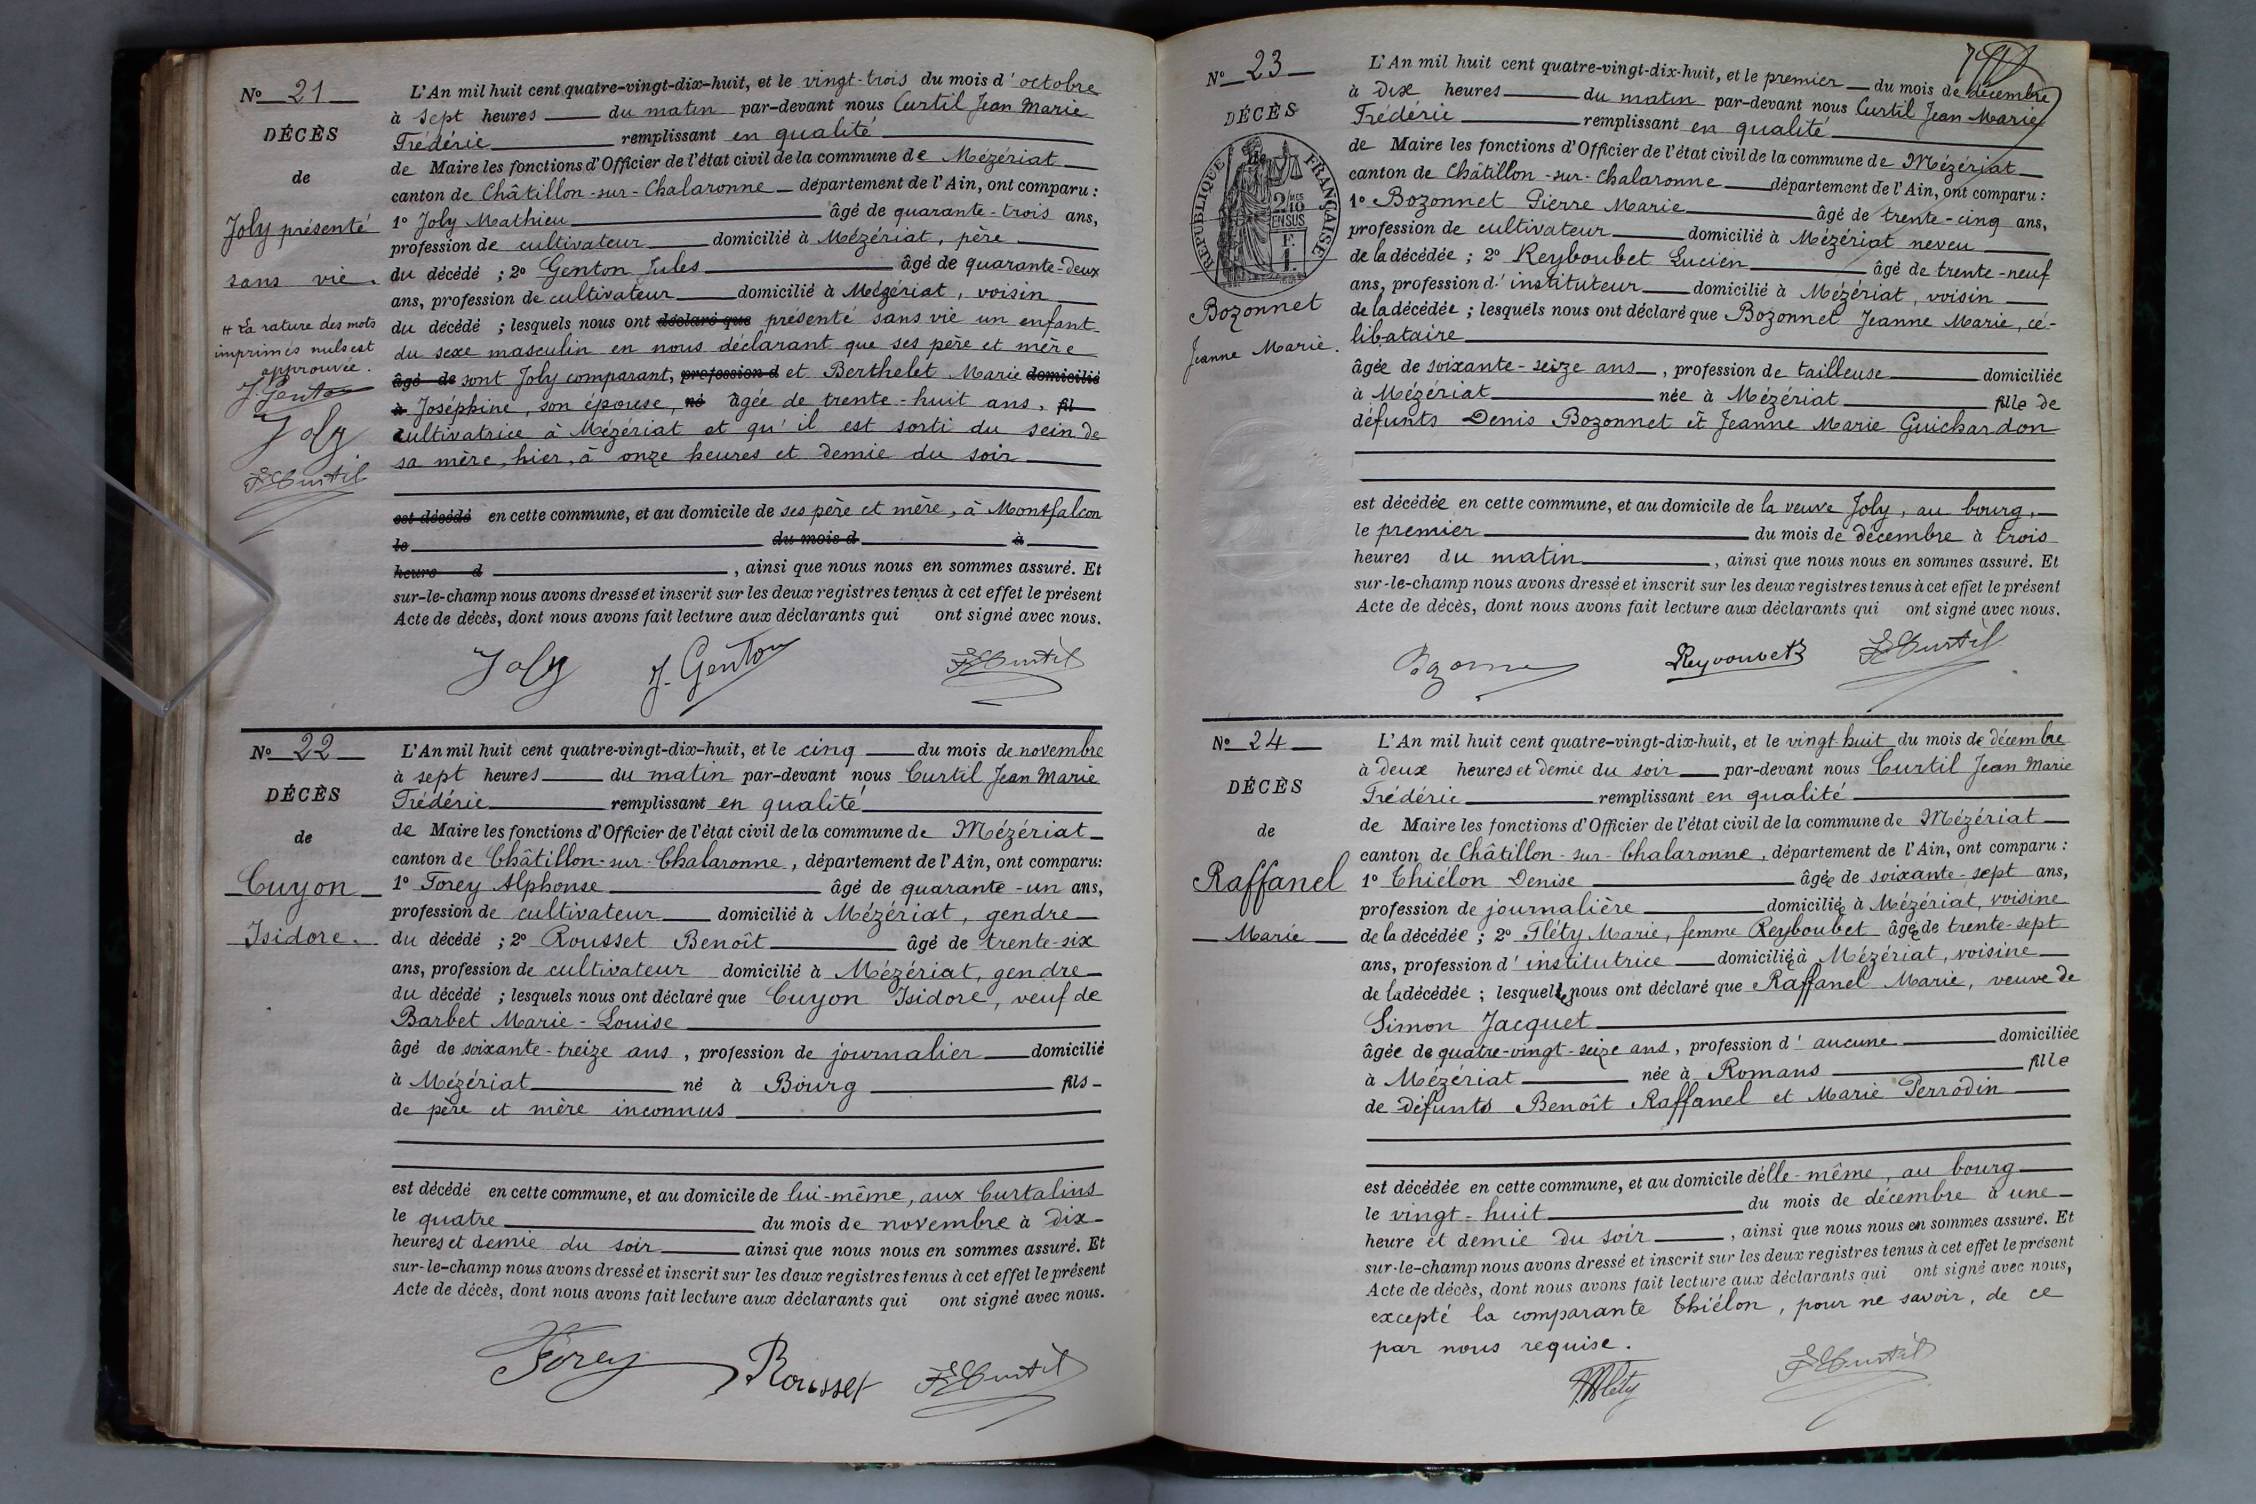 Nº 21
DÉCÈS
de
Joly présenté
sans vie.
# La rature des mots
imprimés nuls est
approuvée.
J. Genton
Joly
F. Curtil
L'An mil huit cent quatre-vingt-dix-huit, et le vingt-trois du mois d'octobre
à sept heures du matin par-devant nous Curtil Jean Marie
Frédéric remplissant en qualité
de Maire les fonctions d'Officier de l'état civil de la commune de Mézériat
canton de Châtillon-sur-Chalaronne département de l'Ain, ont comparu :
1º Joly Mathieu âgé de quarante-trois ans,
profession de cultivateur domicilié à Mézériat, père
du décédé ; 2º Genton Jules âgé de quarante-deux
ans, profession de cultivateur domicilié à Mézériat, voisin
du décédé ; lesquels nous ont déclaré que présenté sans vie un enfant
du sexe masculin en nous déclarant que ses père et mère
âgé de sont Joly comparant, profession d et Berthelet Marie domicilié
à Joséphine, son épouse, né âgée de trente-huit ans, fil
cultivatrice à Mézériat et qu'il est sorti du sein de
sa mère, hier, à onze heures et demie du soir
est décédé en cette commune, et au domicile de ses père et mère, à Montfalcon
le du mois d à
heure d , ainsi que nous nous en sommes assuré. Et
sur-le-champ nous avons dressé et inscrit sur les deux registres tenus à cet effet le présent
Acte de décès, dont nous avons fait lecture aux déclarants qui ont signé avec nous.
Joly J. Genton F. Curtil
Nº 22
DÉCÈS
de
Cuyon
Isidore.
L'An mil huit cent quatre-vingt-dix-huit, et le cinq du mois de novembre
à sept heures du matin par-devant nous Curtil Jean Marie
Frédéric remplissant en qualité
de Maire les fonctions d'Officier de l'état civil de la commune de Mézériat
canton de Châtillon-sur-Chalaronne, département de l'Ain, ont comparu:
1º Forey Alphonse âgé de quarante-un ans,
profession de cultivateur domicilié à Mézériat, gendre
du décédé ; 2º Rousset Benoît âgé de trente-six
ans, profession de cultivateur domicilié à Mézériat, gendre
du décédé ; lesquels nous ont déclaré que Cuyon Isidore, veuf de
Barbet Marie-Louise
âgé de soixante-treize ans, profession de journalier domicilié
à Mézériat né à Bourg fils
de père et mère inconnus
est décédé en cette commune, et au domicile de lui-même, aux Curtalins
le quatre du mois de novembre à dix
heures et demie du soir ainsi que nous nous en sommes assuré. Et
sur-le-champ nous avons dressé et inscrit sur les deux registres tenus à cet effet le présent
Acte de décès, dont nous avons fait lecture aux déclarants qui ont signé avec nous.
Forey Rousset F. Curtil
Nº 23
DÉCÈS
de
RÉPUBLIQUE FRANÇAISE
2/10MES
EN SUS
Bozonnet
Jeanne Marie.
L'An mil huit cent quatre-vingt-dix-huit, et le premier du mois de décembre
à dix heures du matin par-devant nous Curtil Jean Marie
Frédéric remplissant en qualité
de Maire les fonctions d'Officier de l'état civil de la commune de Mézériat
canton de Châtillon-sur-Chalaronne département de l'Ain, ont comparu :
1º Bozonnet Pierre Marie âgé de trente-cinq ans,
profession de cultivateur domicilié à Mézériat neveu
de la décédée ; 2º Reyboubet Lucien âgé de trente-neuf
ans, profession d'instituteur domicilié à Mézériat, voisin
de la décédée ; lesquels nous ont déclaré que Bozonnet Jeanne Marie, cé-
libataire
âgée de soixante-seize ans, profession de tailleuse domiciliée
à Mézériat née à Mézériat fille de
défunts Denis Bozonnet et Jeanne Marie Guichardon
est décédée en cette commune, et au domicile de la veuve Joly, au bourg,
le premier du mois de décembre à trois
heures du matin , ainsi que nous nous en sommes assuré. Et
sur-le-champ nous avons dressé et inscrit sur les deux registres tenus à cet effet le présent
Acte de décès, dont nous avons fait lecture aux déclarants qui ont signé avec nous.
Reyboubet F. Curtil
Nº 24
DÉCÈS
de
Raffanel
Marie
L'An mil huit cent quatre-vingt-dix-huit, et le vingt-huit du mois de décembre
à deux heures et demie du soir par-devant nous Curtil Jean Marie
Frédéric remplissant en qualité
de Maire les fonctions d'Officier de l'état civil de la commune de Mézériat
canton de Châtillon-sur-Chalaronne, département de l'Ain, ont comparu :
1º Thiélon Denise âgée de soixante-sept ans,
profession de journalière domiciliée à Mézériat, voisine
de la décédée ; 2º Fléty Marie, femme Reyboubet âgée de trente-sept
ans, profession d'institutrice domiciliée à Mézériat, voisine
de la décédée ; lesquelles nous ont déclaré que Raffanel Marie, veuve de
Simon Jacquet
âgée de quatre-vingt-seize ans, profession d'aucune domiciliée
à Mézériat née à Romans fille
de défunts Benoît Raffanel et Marie Perrodin
est décédée en cette commune, et au domicile d'elle-même, au bourg
le vingt-huit du mois de décembre à une
heure et demie du soir , ainsi que nous nous en sommes assuré. Et
sur-le-champ nous avons dressé et inscrit sur les deux registres tenus à cet effet le présent
Acte de décès, dont nous avons fait lecture aux déclarants qui ont signé avec nous,
excepté la comparante Thiélon, pour ne savoir, de ce
par nous requise.
M Fléty F. Curtil